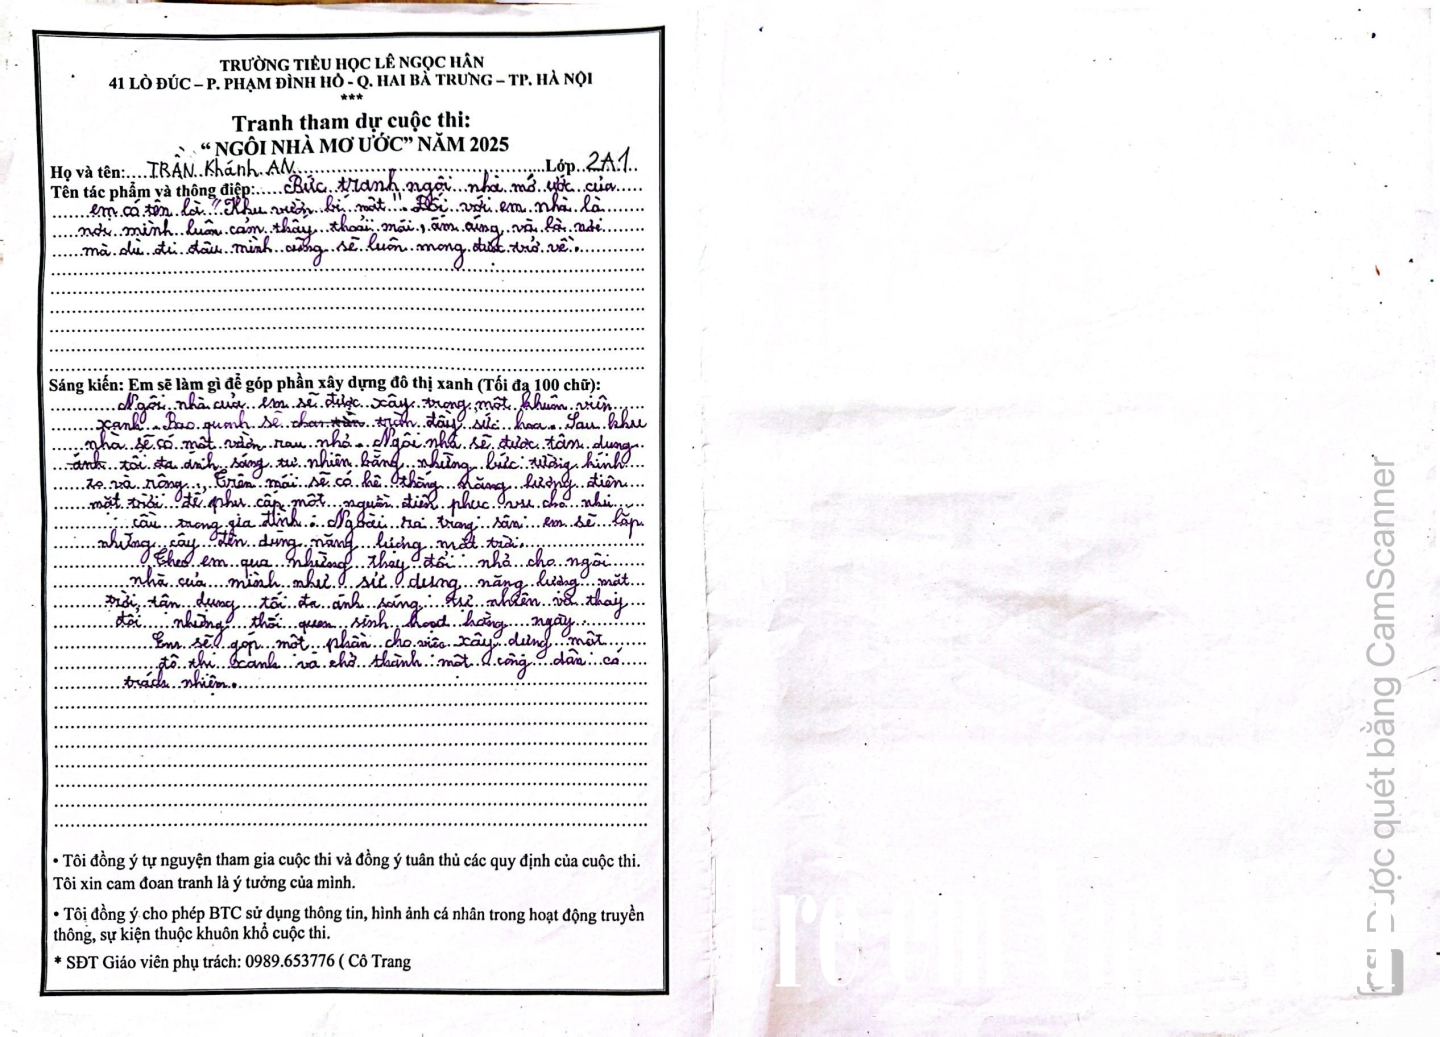 TRƯỜNG TIỂU HỌC LÊ NGỌC HÂN
41 LÒ ĐÚC – P. PHẠM ĐÌNH HỔ - Q. HAI BÀ TRƯNG – TP. HÀ NỘI
***
Tranh tham dự cuộc thi:
“ NGÔI NHÀ MƠ ƯỚC” NĂM 2025
Họ và tên:....TRẦN Khánh AN..........Lớp..2A1..
Tên tác phẩm và thông điệp:.....Bức tranh ngôi nhà mơ ước của
em có tên là "Khu vườn bí mật". Đối với em nhà là
nơi mình luôn cảm thấy thoải mái, ấm cúng và là nơi
mà dù đi đâu mình cũng sẽ luôn mong được trở về.
Sáng kiến: Em sẽ làm gì để góp phần xây dựng đô thị xanh (Tối đa 100 chữ):
Ngôi nhà của em sẽ được xây trong một khuôn viên
xanh. Bao quanh sẽ tràn đầy sức hoa. Sau khu
nhà sẽ có một vườn rau nhỏ. Ngôi nhà sẽ được tận dụng
tối đa ánh sáng tự nhiên bằng những bức tường kính
to và rộng., Trên mái sẽ có hệ thống năng lượng điện
mặt trời để phụ cấp một nguồn điện phục vụ cho nhu
cầu trong gia đình. Ngoài ra trong sân em sẽ lắp
những cây đèn dùng năng lượng mặt trời.
Theo em qua những thay đổi nhỏ cho ngôi
nhà của mình như sử dụng năng lượng mặt
trời, tận dụng tối đa ánh sáng tự nhiên và thay
đổi những thói quen sinh hoạt hằng ngày.
Em sẽ góp một phần cho việc xây dựng một
đô thị xanh và chở thành một công dân có
trách nhiệm.
• Tôi đồng ý tự nguyện tham gia cuộc thi và đồng ý tuân thủ các quy định của cuộc thi.
Tôi xin cam đoan tranh là ý tưởng của mình.
• Tôi đồng ý cho phép BTC sử dụng thông tin, hình ảnh cá nhân trong hoạt động truyền
thông, sự kiện thuộc khuôn khổ cuộc thi.
* SĐT Giáo viên phụ trách: 0989.653776 ( Cô Trang
CS Được quét bằng CamScanner